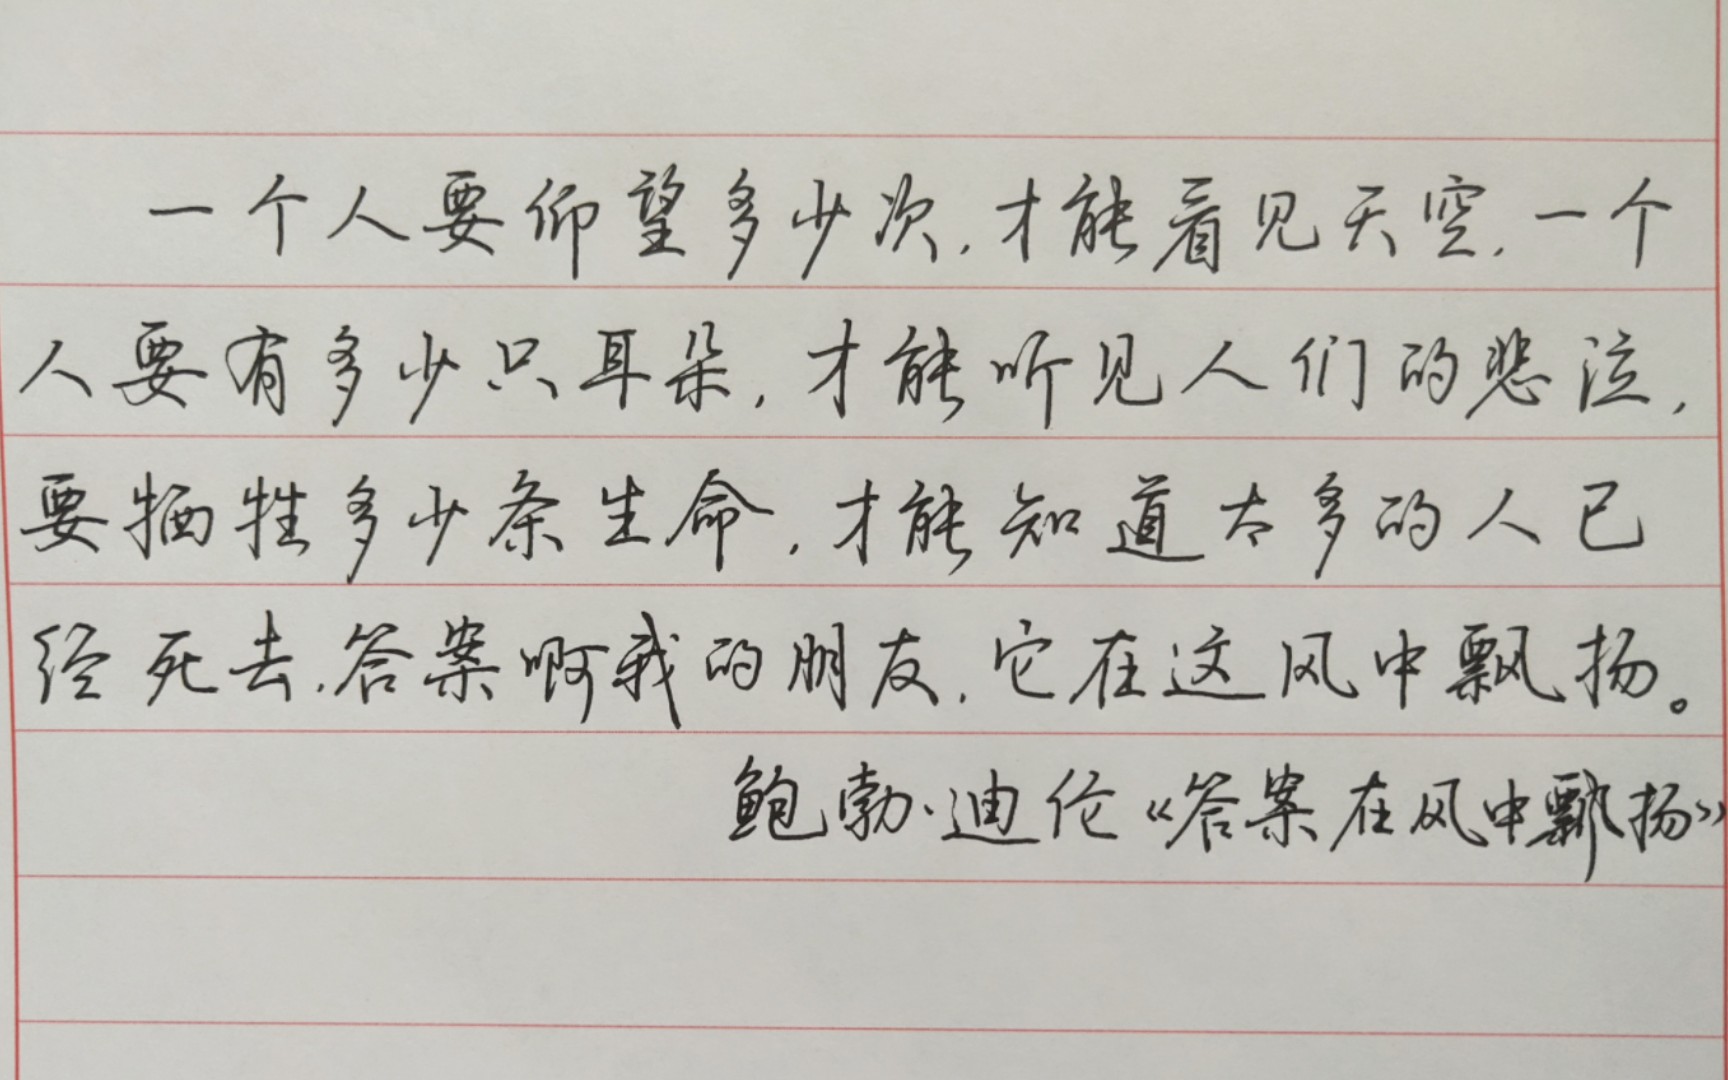 一个人要仰望多少次,才能看见天空,一个
人要有多少只耳朵,才能听见人们的悲泣,
要牺牲多少条生命,才能知道太多的人已
经死去,答案啊我的朋友,它在这风中飘扬。
鲍勃·迪伦《答案在风中飘扬》